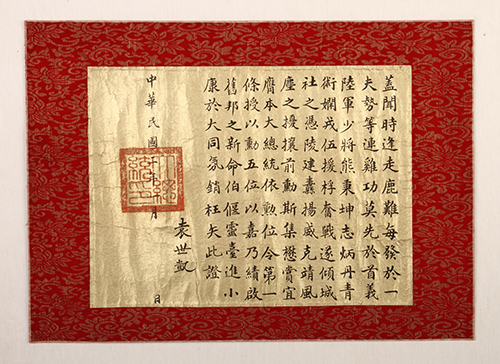 蓋聞時逢走鹿難每發於一
夫勢等連雞功莫先於首義
陸軍少將熊秉坤志炳丹青
術嫻戎伍援桴奮戰遂傾城
社之憑陵建櫜揚威克靖風
塵之擾攘前勳斯集懋賞宜
膺本大總統依勲位令第一
條授以勳五位以嘉乃績啟
舊邦之新命伯偃靈臺進小
康於大同氛銷枉矢此證
袁世凱
中華民國 月 日